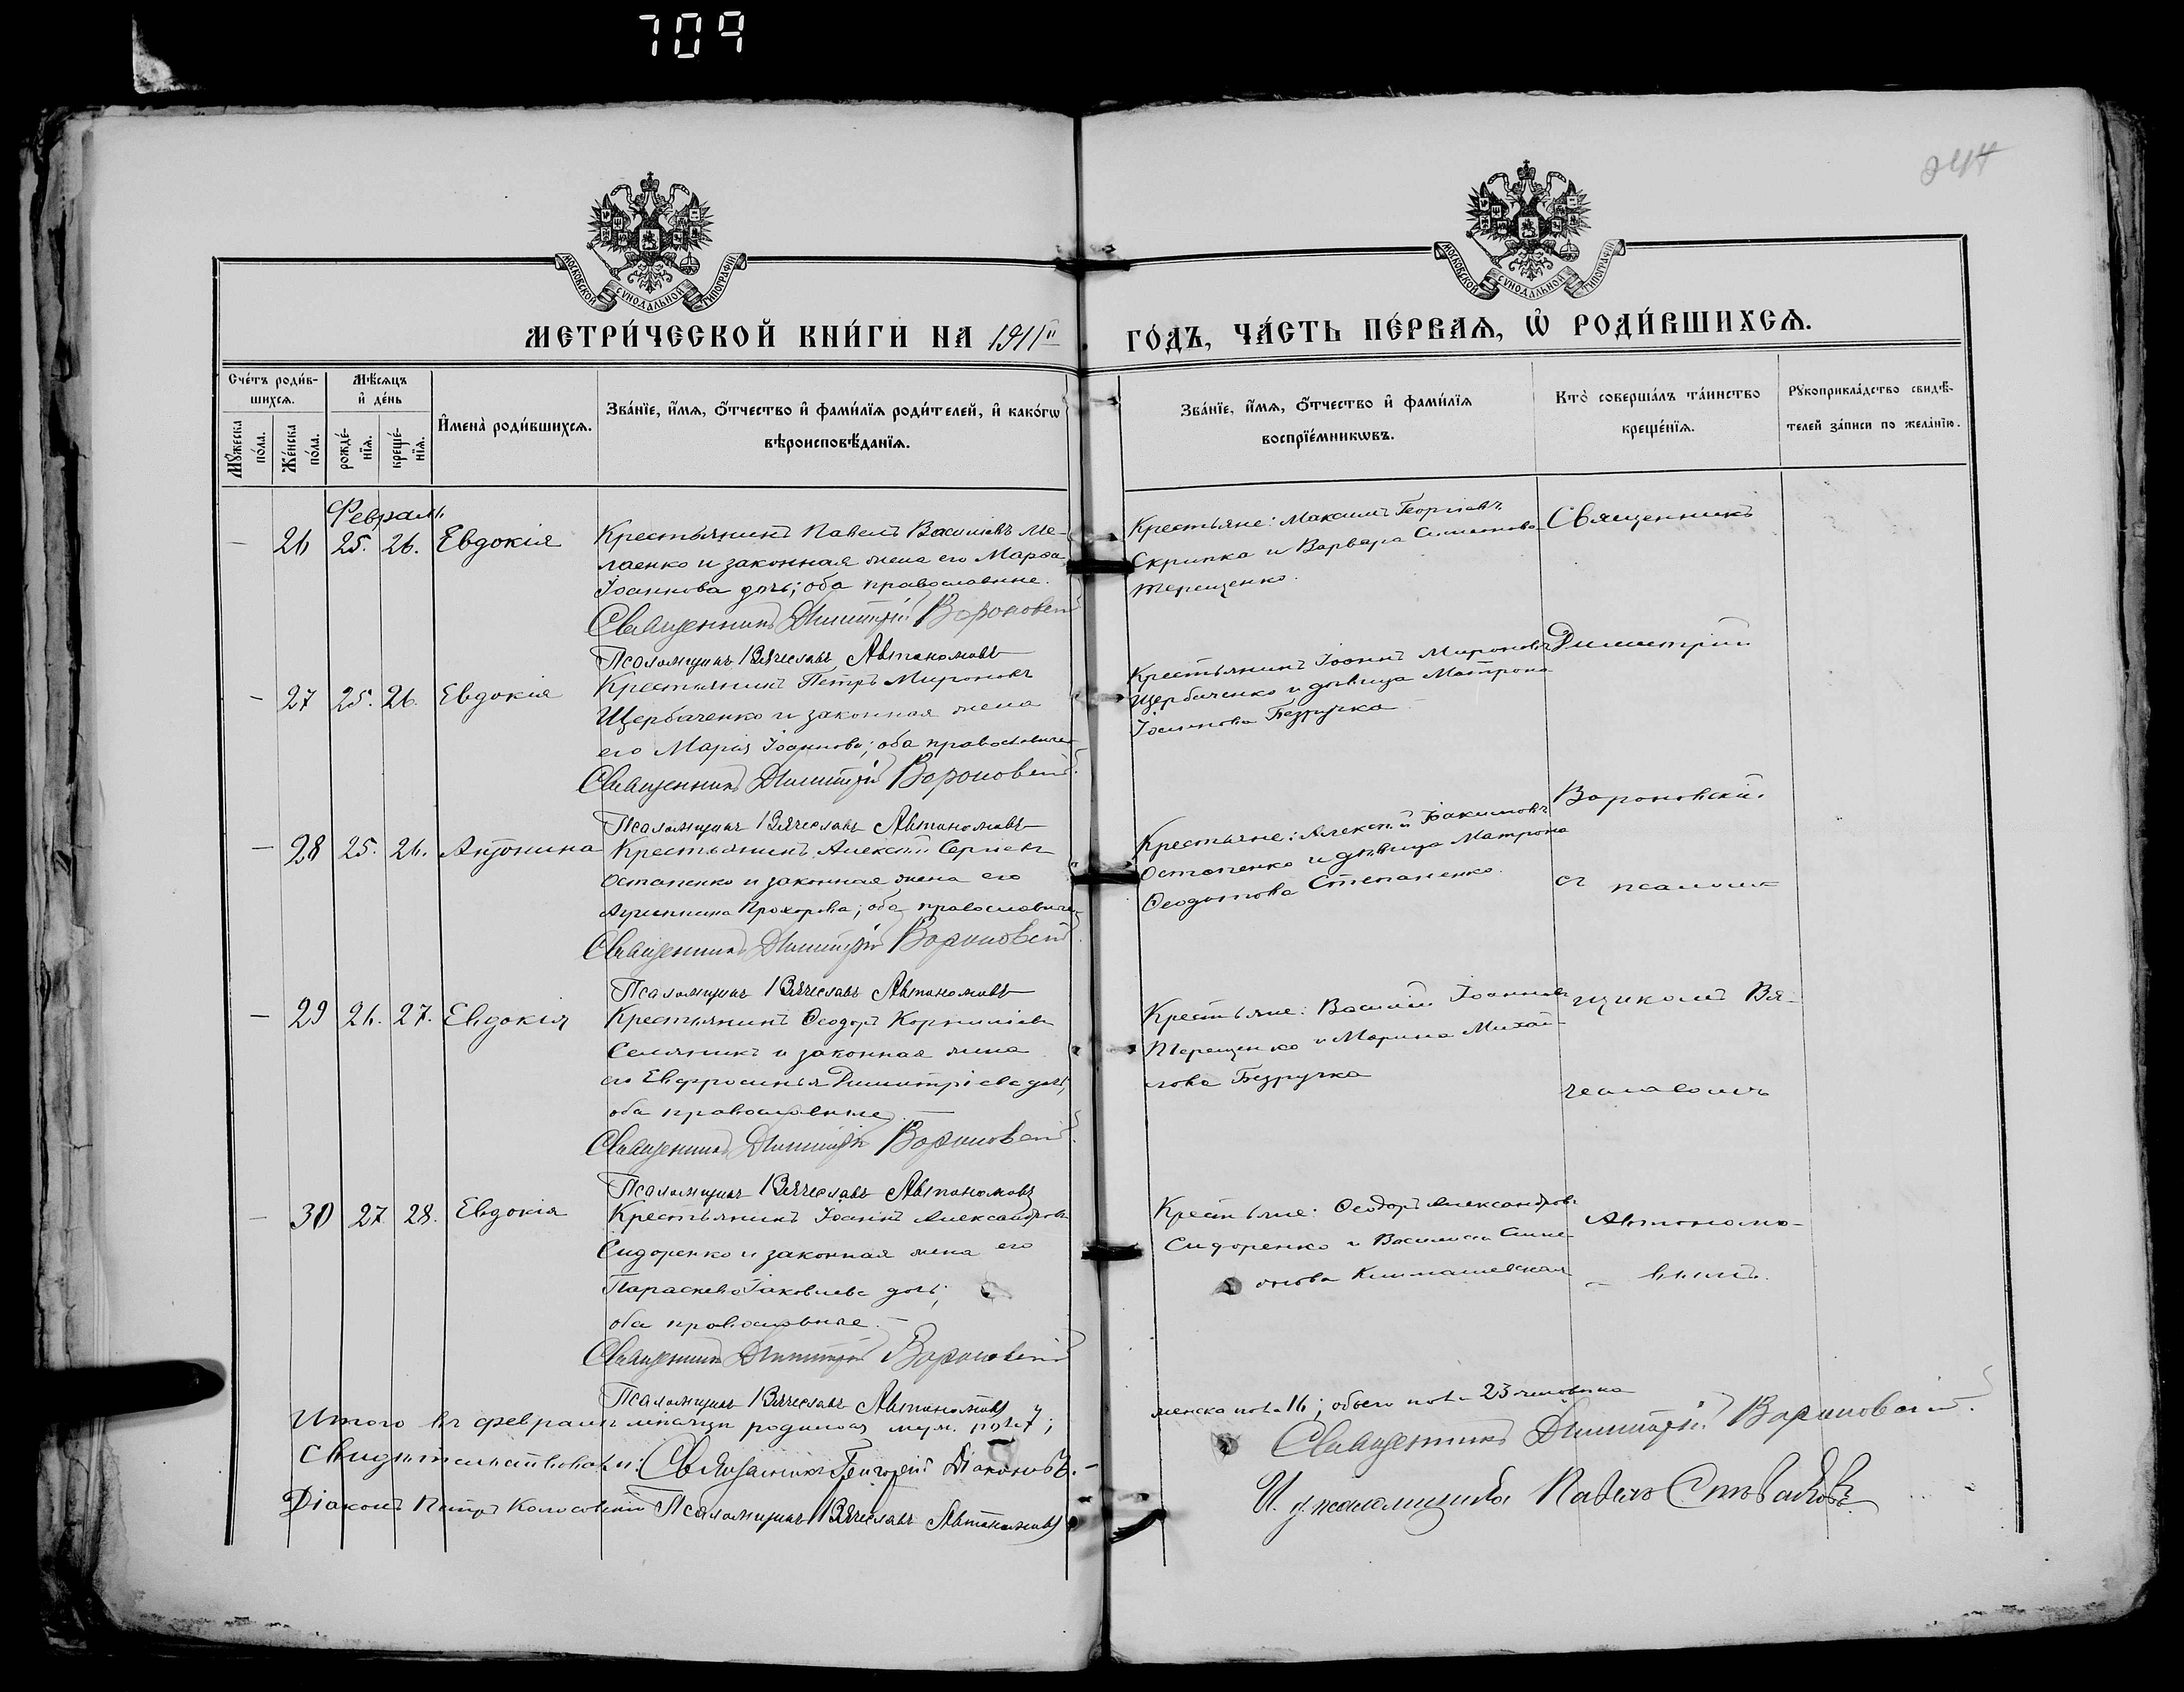 709
244
МОСКОВСКОЙ СУНОДАЛЬНОЙ ТИПОГРАФІИ
МОСКОВСКОЙ СУНОДАЛЬНОЙ ТИПОГРАФІИ
МЕТРИ́ЧЕСКОЙ КНИ́ГИ НА 1911й ГО́ДЪ, ЧА́СТЬ ПЕ́РВАѦ, Ѡ҆ РОДИ́ВШИХСѦ.
Сче́тъ роди́в-
шихсѧ.
Мѣ́сѧцъ
и҆ де́нь
Мꙋ́жеска
по́ла.
Же́нска
по́ла.
рожде́-
нїѧ.
креще́-
нїѧ.
И҆мена̀ роди́вшихсѧ.
Зва́нїе, и҆́мѧ, ѻ҆́тчество и҆ фами́лїѧ роди́телей, и҆ како́гѡ
вѣроисповѣ́данїѧ.
Зва́нїе, и҆́мѧ, ѻ҆́тчество и҆ фами́лїѧ
воспрїе́мникѡвъ.
Кто̀ соверша́лъ та́инство
креще́нїѧ.
Рꙋкоприкла́дство свидѣ́-
телей за́писи по жела́нїю.
Февраль
— 26 25. 26. Евдокія
Крестьянинъ Павелъ Василіевъ
и законная жена его Марѳа
Іоаннова дочь; оба православные.
Священникъ Димитрій Вороновскій
Псаломщикъ Вячеславъ Автономовъ
Крестьяне: Максимъ Георгіевъ
Скрипка и Варвара Симеонова
Терещенко.
— 27 25. 26. Евдокія
Крестьянинъ Петръ Мироновъ
Щербаченко и законная жена
его Марія Іоаннова; оба православные
Священникъ Димитрій Вороновскій.
Псаломщикъ Вячеславъ Автономовъ
Крестьянинъ Іоаннъ Мироновъ
Щербаченко и дѣвица Матрона
Іоаннова Безручка
— 28 25. 26. Антонина
Крестьянинъ Алексій Сергіевъ
Остапенко и законная жена его
Агриппина Прохорова; оба православные
Священникъ Димитрій Вороновскій.
Псаломщикъ Вячеславъ Автономовъ
Крестьяне: Алексій Іоакимовъ
Остапенко и дѣвица Матрона
Ѳеодотова Степаненко.
— 29 26. 27. Евдокія
Крестьянинъ Ѳеодоръ Корниліевъ
Семяникъ и законная жена
его Евфросинья Димитріева дочь,
оба православные. —
Священникъ Димитрій Вороновскій.
Псаломщикъ Вячеславъ Автономовъ
Крестьяне: Василій Іоанновъ
Терещенко и Марина Михай-
лова Безручка
— 30 27 28. Евдокія
Крестьянинъ Іоаннъ Александровъ
Сидоренко и законная жена его
Параскева Іаковлева дочь;
оба православные. —
Священникъ Димитрій Вороновскій
Псаломщикъ Вячеславъ Автономовъ
Крестьяне: Ѳеодоръ Александровъ
Сидоренко и Василиса Симе-
онова
Священникъ
Димитрій
Вороновскій
съ псалом-
щикомъ Вя-
чеславомъ
Автономо-
вымъ.
Итого въ февралѣ мѣсяцѣ родилось муж. пола 7;
женска пола 16; обоего пола 23 человѣка
Священникъ Димитрій Вороновскій.
Свидѣтельствовали: Священникъ Григорій Діаконовъ. —
Діаконъ Петръ Колосовскій Псаломщикъ Вячеславъ Автономовъ
И. д. псаломщика Павелъ